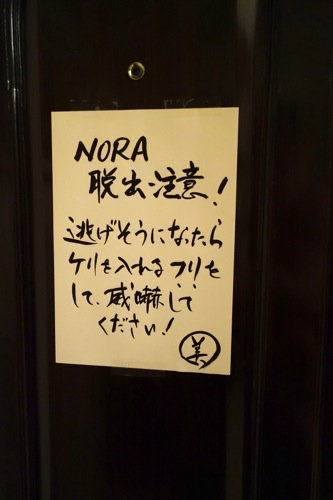 NORA
脱出注意!
逃げそうになったら
ケリを入れるフリを
して、威嚇して
ください!
美